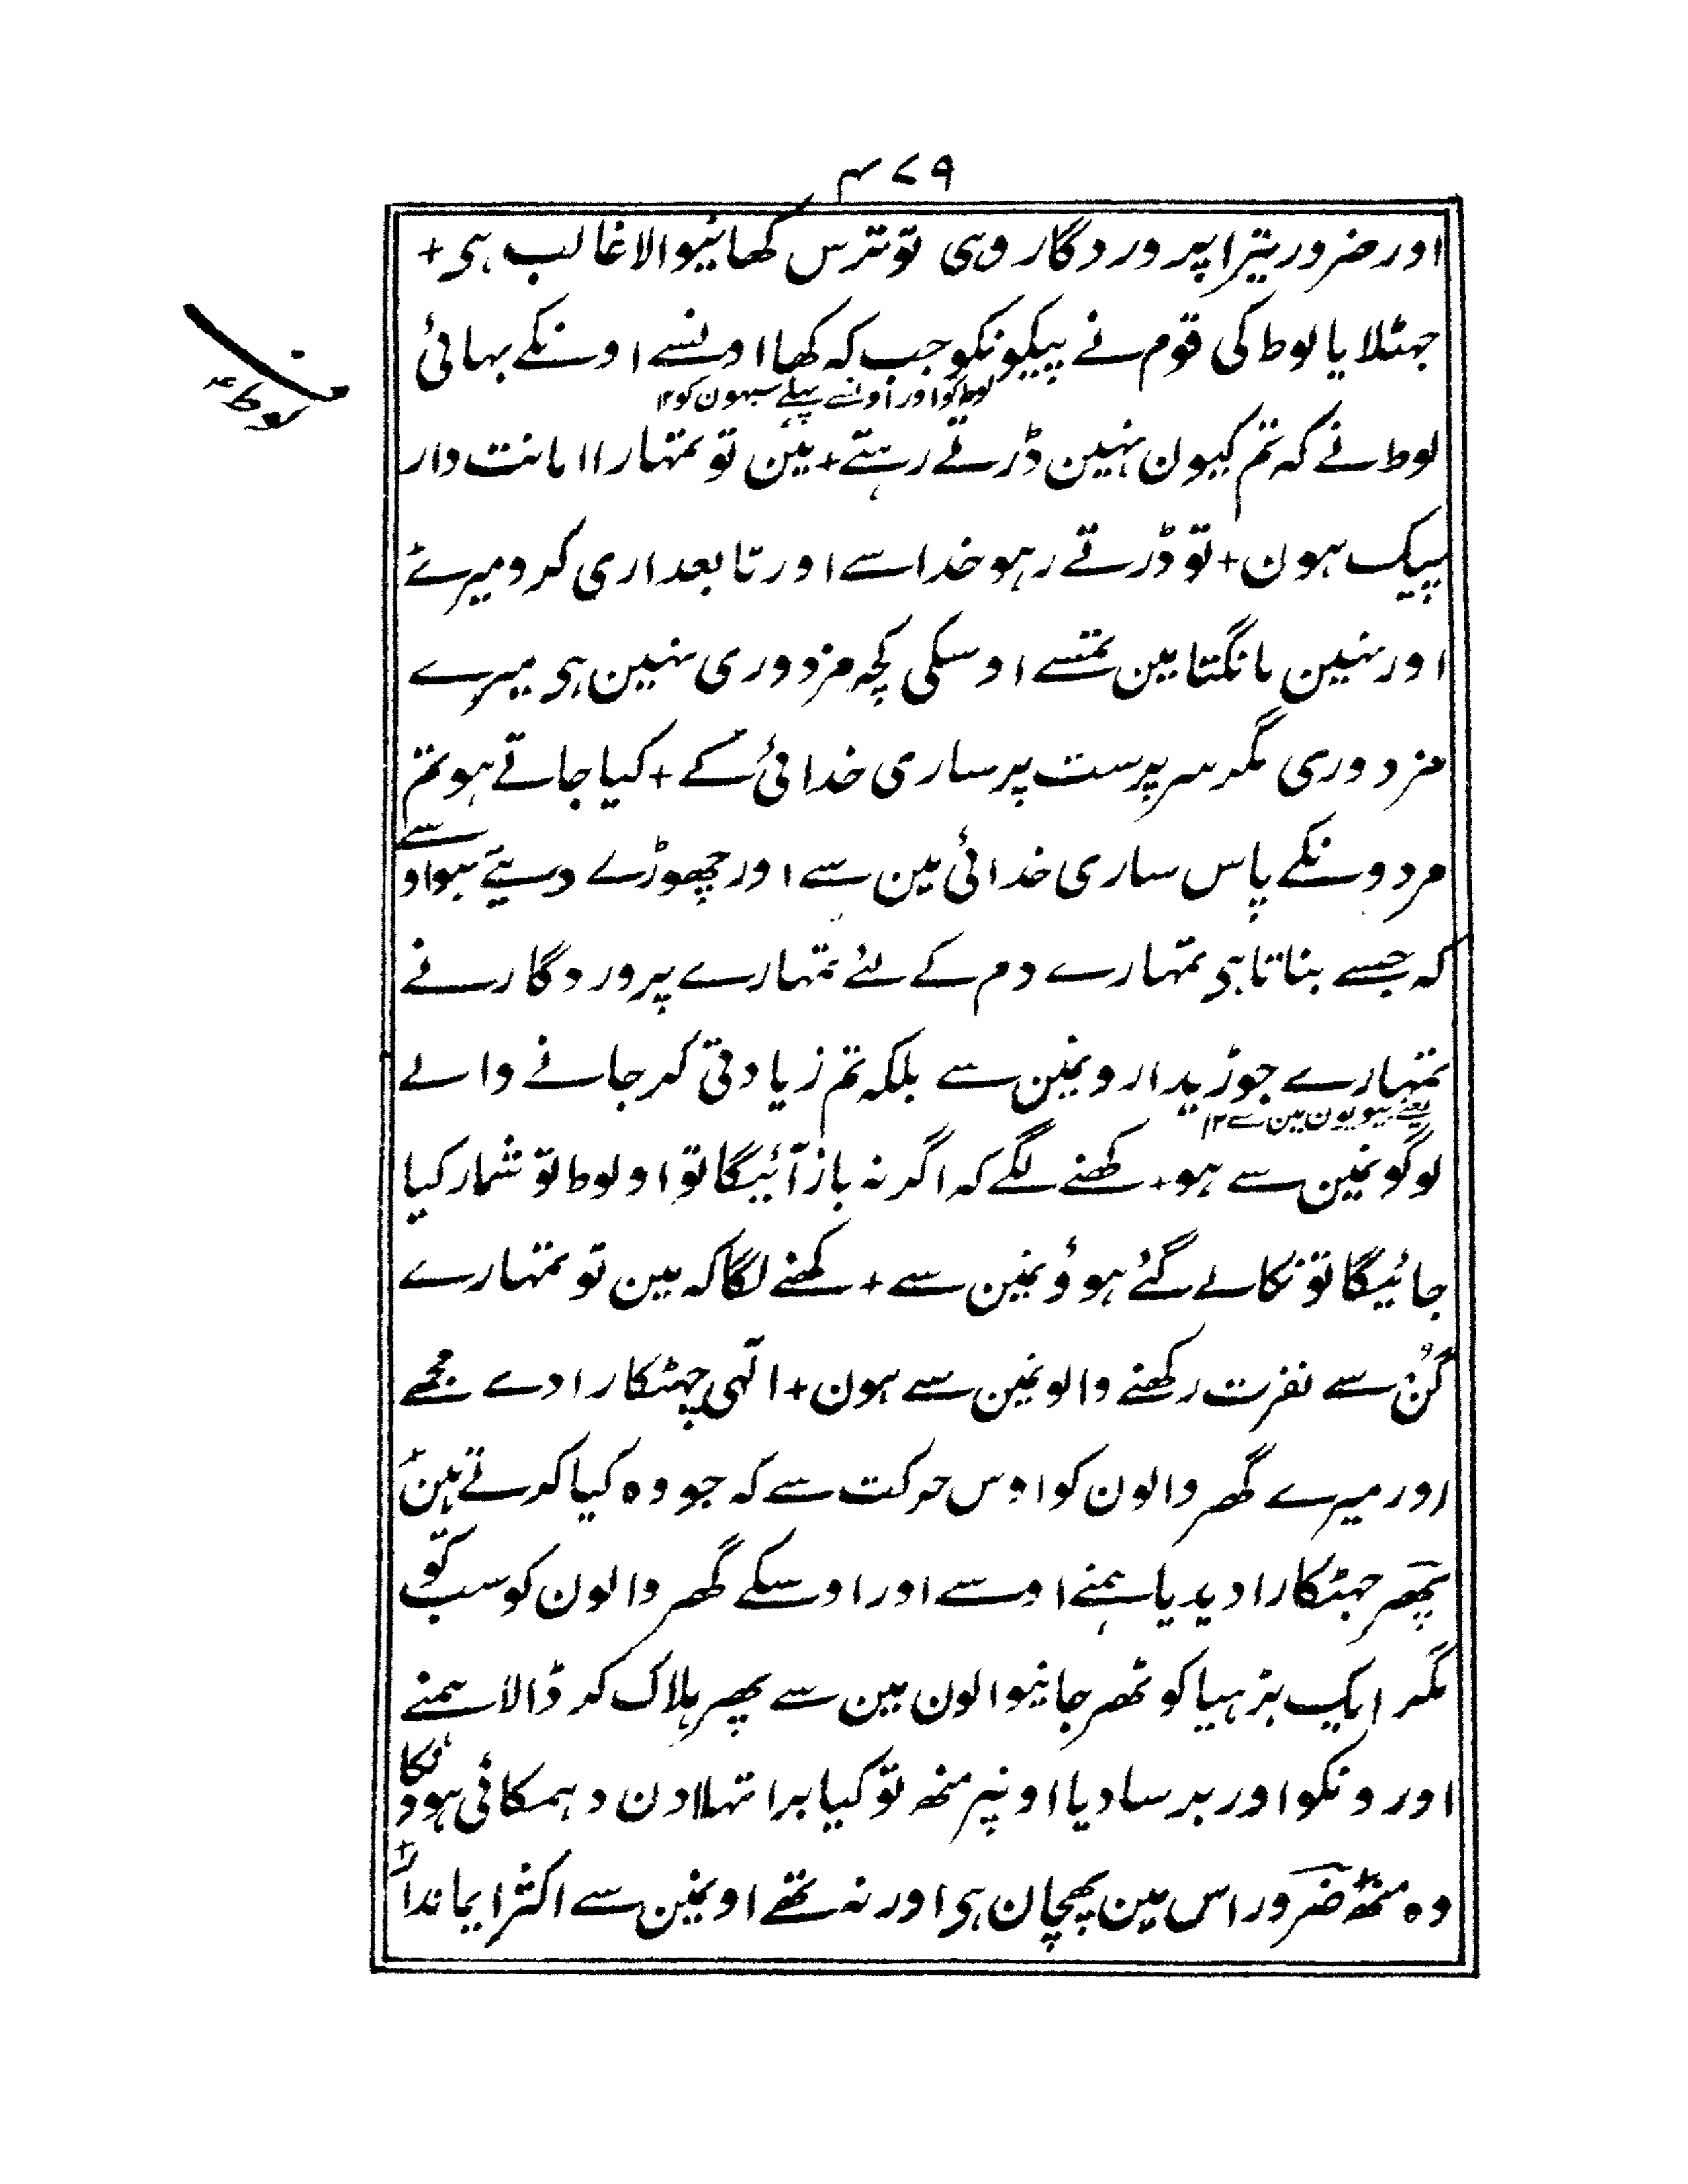 ۴۷۹
اور ضرور تیرا پروردگار وہی تو ترس کھانیوالا غالب ہی +
جہٹلایا لوط کی قوم نے پیکونکو جب کہ کھا اونسے اونکے بہائی
لوط کو اور اونسے پہلے سبہون کو ۱۲
لوط نے کہ تم کیون نہین ڈرتے رہتے + مین تو تمہارا امانت دار
پیک ہون + تو ڈرتے رہو خدا سے اور تابعداری کرو میرے
اور نہین مانگتا مین تمسے اوسکی کچہ مزدوری نہین ہی میرے
مزدوری مگر سرپرست پر ساری خدائی کے + کیا جاتے ہو تم
مردونکے پاس ساری خدائی مین سے اور چھوڑے دیتے ہو اوسے
کہ جسے بناتا ہی تمہارے دم کے لئے تمہارے پروردگار نے
تمہارے جوڑیدارونمین سے بلکہ تم زیادتی کر جانے والے
یعنے بیویون مین سے ۱۲
لوگونمین سے ہو + کھنے لگے کہ اگر نہ باز آئیگا تو او لوط تو شمار کیا
جائیگا تو نکالے گئے ہوؤنمین سے + کھنے لگا کہ مین تو تمہارے
گن سے نفرت رکھنے والونمین سے ہون + الٰہی چہٹکارا دے مجھے
اور میرے گھر والون کو اوس حرکت سے کہ جو وہ کیا کرتے ہین +
پھر چہٹکارا دیدیا ہمنے اوسے اور اوسکے گھر والون کو سب کو
مگر ایک بڑہیا کو ٹھر جانیوالون مین سے پھر ہلاک کر ڈالا ہمنے
اور ونکو اور برسا دیا اونپر منھ تو کیا برا تہلا دن دہمکائی ہوونکا
وہ منھ + ضرور اس مین پھچان ہی اور نہ تھے اونمین سے اکثر ایماندار +
لوط